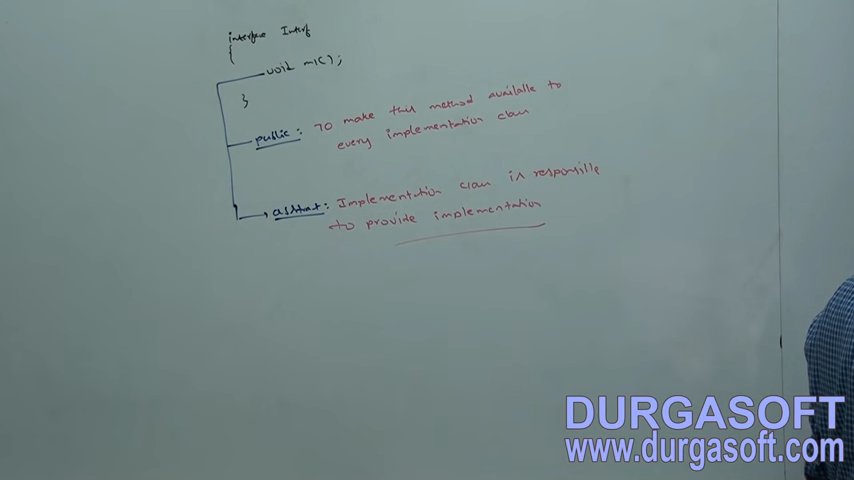 interface Interf
{
void m1();
}
public: To make this method available to
every implementation class
abstract: Implementation class is responsible
to provide implementation
DURGASOFT
www.durgasoft.com